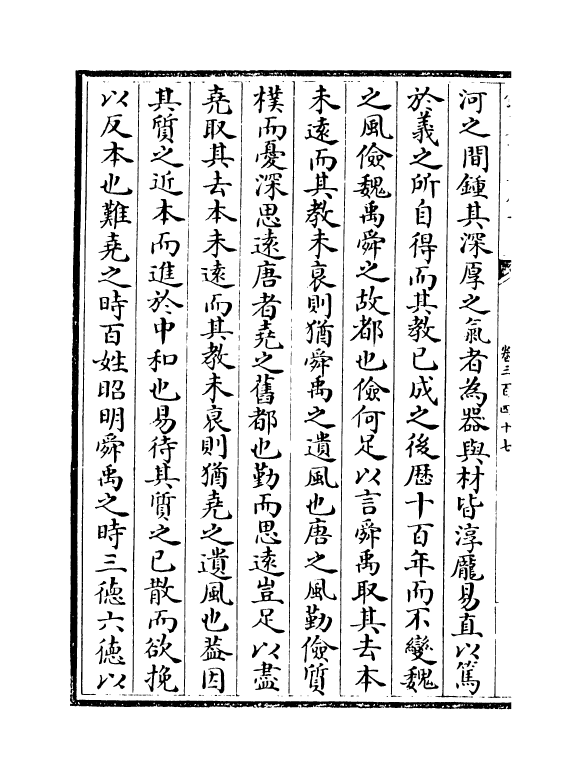 河之間鍾其深厚之氣者為器與材皆淳龎易直以篤
於義之所自得而其教已成之後歴十百年而不變魏
之風儉魏禹舜之故都也儉何足以言舜禹取其去本
未逺而其教未衰則猶舜禹之遺風也唐之風勤儉質
樸而憂深思逺唐者堯之舊都也勤而思逺豈足以盡
堯取其去本未逺而其教未衰則猶堯之遺風也葢因
其質之近本而進於中和也易待其質之已散而欲挽
以反本也難堯之時百姓昭明舜禹之時三徳六徳以
卷三百四十七